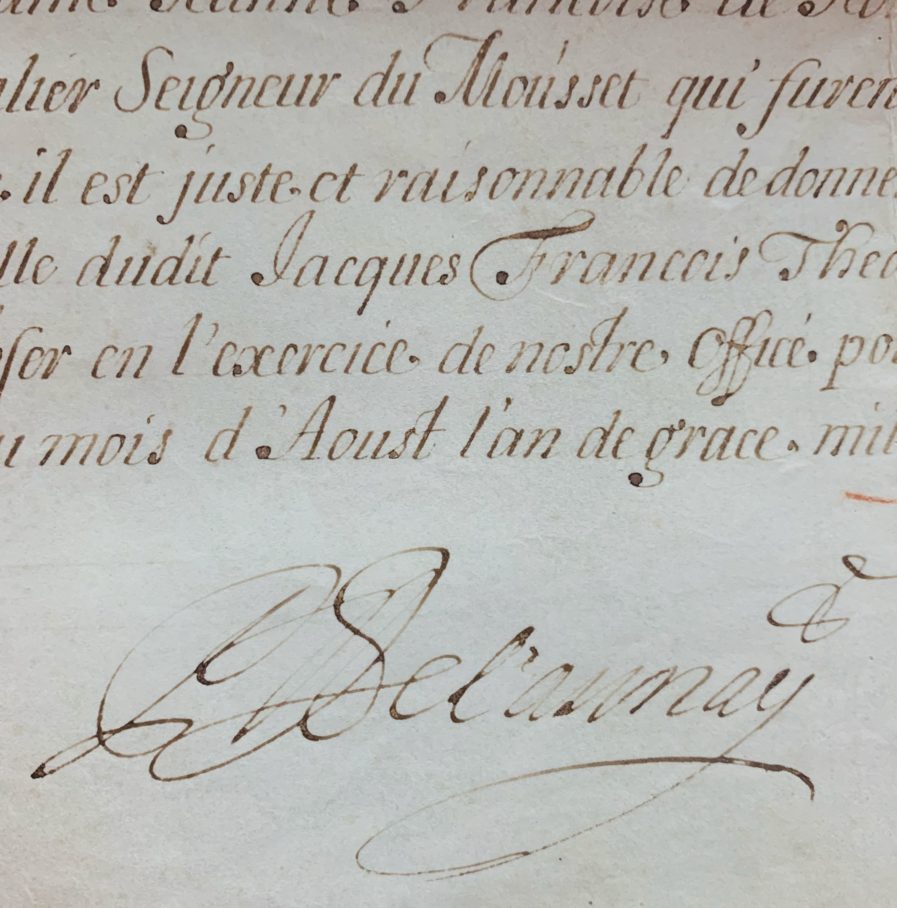 Jeanne Françoise de
alier Seigneur du Moússet qui furen
il est juste et raisonnable de donne
lle dudit Jacques Francois Theo
ser en l'exercice de nostre Office po
u mois d'Aoust l'an de grace mil
Delaunay